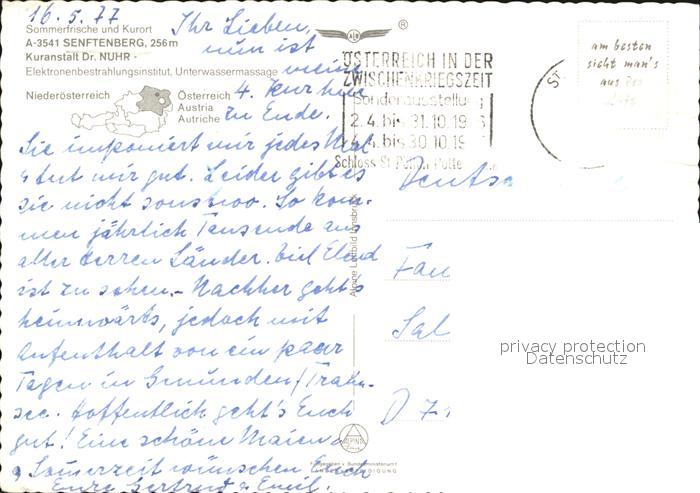 16.5.77
Sommerfrische und Kurort
A-3541 SENFTENBERG, 256m
Kuranstalt Dr. NUHR -
Elektronenbestrahlungsinstitut, Unterwassermassage
Niederösterreich
Österreich
Austria
Autriche
Ihr Lieben,
nun ist
meine
4. Kur hier
zu Ende.
Sie imponiert mir jedes Mal
u tut mir gut. Leider gibt es
sie nicht sonstwo. So kom-
men jährlich Tausende aus
aller Herren Länder. Viel Elend
ist zu sehen. - Nachher geht's
heimwärts, jedoch mit
Aufenthalt von ein paar
Tagen in Gmunden/Traun-
see. Hoffentlich geht's Euch
gut! Eine schöne Maien
u Sommerzeit wünschen Euch
Eure Gertrud u Emil.
Alpine Luftbild Innsbruck
®
ÖSTERREICH IN DER
ZWISCHENKRIEGSZEIT
Sonderausstellung
2.4. bis 31.10.19
bis 30.10.19
Schloss
ST
am besten
sieht man's
aus der
Luft
Deutsc
Fam
Sal
D 71
privacy protection
Datenschutz
ALPINE